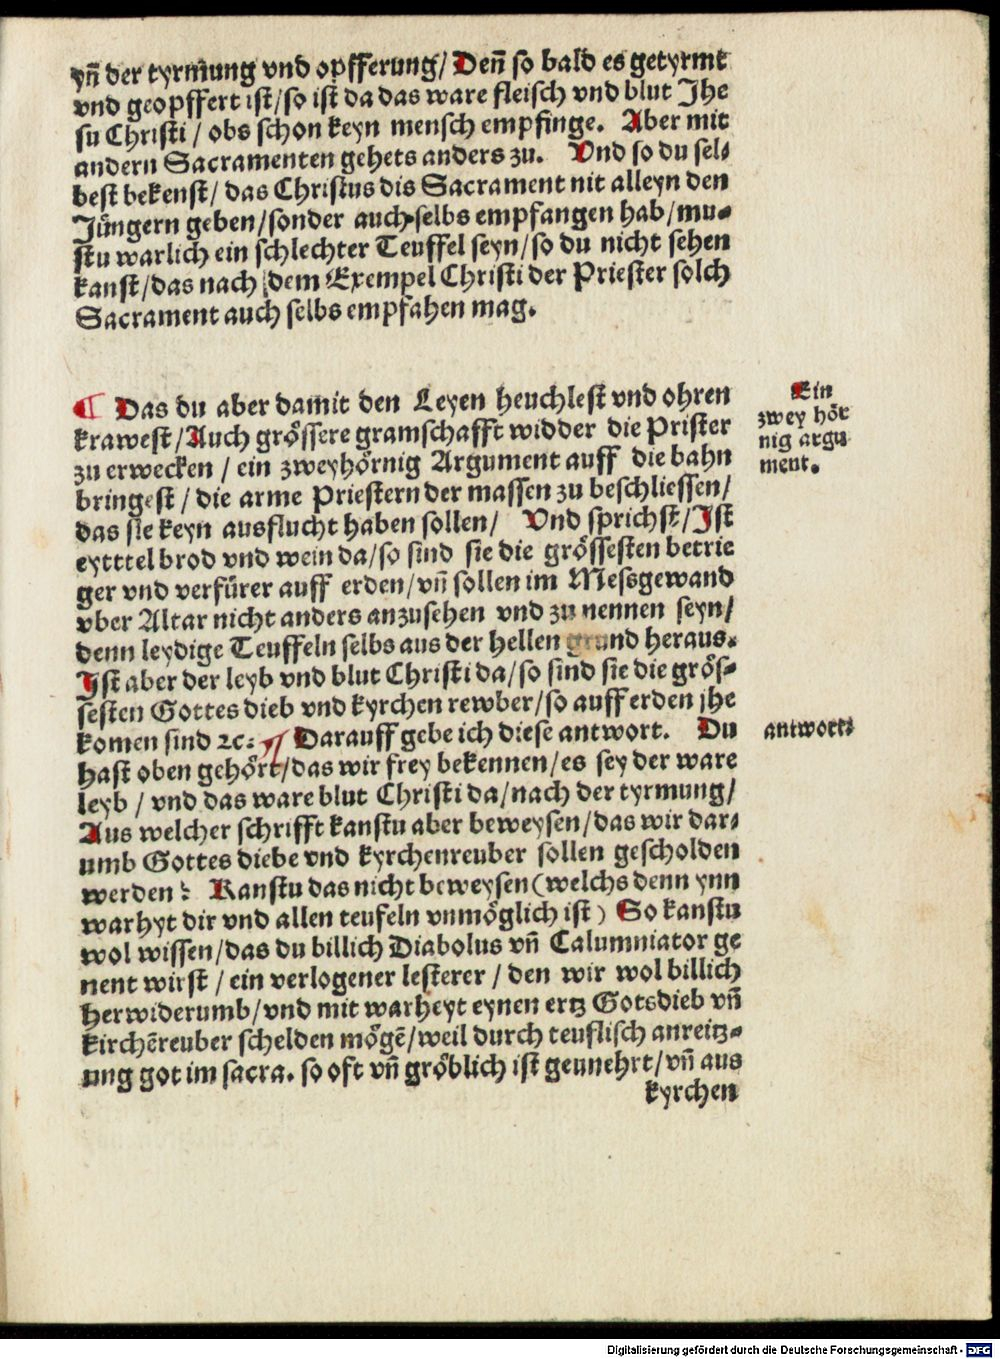 yñ der tyrmung vnd opfferung/ Deñ so bald es getyrmt
vnd geopffert ist/so ist da das ware fleisch vnd blut Jhe
su Christi / obs schon keyn mensch empfinge. Aber mit
andern Sacramenten gehets anders zu. Vnd so du sel⸗
best bekenst/ das Christus dis Sacrament nit alleyn den
Jüngern geben/sonder auch selbs empfangen hab/mu⸗
stu warlich ein schlechter Teuffel seyn/so du nicht sehen
kanst/das nach dem Exempel Christi der Priester solch
Sacrament auch selbs empfahen mag.
¶ Das du aber damit den Leyen heuchlest vnd ohren
krawest/Auch grössere gramschafft widder die Prister
zu erwecken / ein zweyhörnig Argument auff die bahn
bringest / die arme Priestern der massen zu beschliessen/
das sie keyn ausflucht haben sollen/ Vnd sprichst/Jst
eytttel brod vnd wein da/so sind sie die grössesten betrie
ger vnd verfürer auff erden/vñ sollen im Mesgewand
vber Altar nicht anders anzusehen vnd zu nennen seyn/
denn leydige Teuffeln selbs aus der hellen grund heraus.
Jst aber der leyb vnd blut Christi da/so sind sie die grös⸗
sesten Gottes dieb vnd kyrchen rewber/so auff erden jhe
komen sind ꝛc. ¶ Darauff gebe ich diese antwort. Du
hast oben gehört/das wir frey bekennen/es sey der ware
leyb / vnd das ware blut Christi da/nach der tyrmung/
Aus welcher schrifft kanstu aber beweysen/das wir dar⸗
umb Gottes diebe vnd kyrchenreuber sollen gescholden
werden? Kanstu das nicht beweysen(welchs denn ynn
warhyt dir vnd allen teufeln vnmöglich ist) So kanstu
wol wissen/das du billich Diabolus vñ Calumniator ge
nent wirst / ein verlogener lesterer / den wir wol billich
herwiderumb/vnd mit warheyt eynen ertz Gotsdieb vñ
kirchēreuber schelden mögē/weil durch teuflisch anreitz⸗
ung got im sacra. so oft vñ gröblich ist geunehrt/vñ aus
kyrchen
Ein
zwey hör
nig argu
ment.
antwort
Digitalisierung gefördert durch die Deutsche Forschungsgemeinschaft - DFG